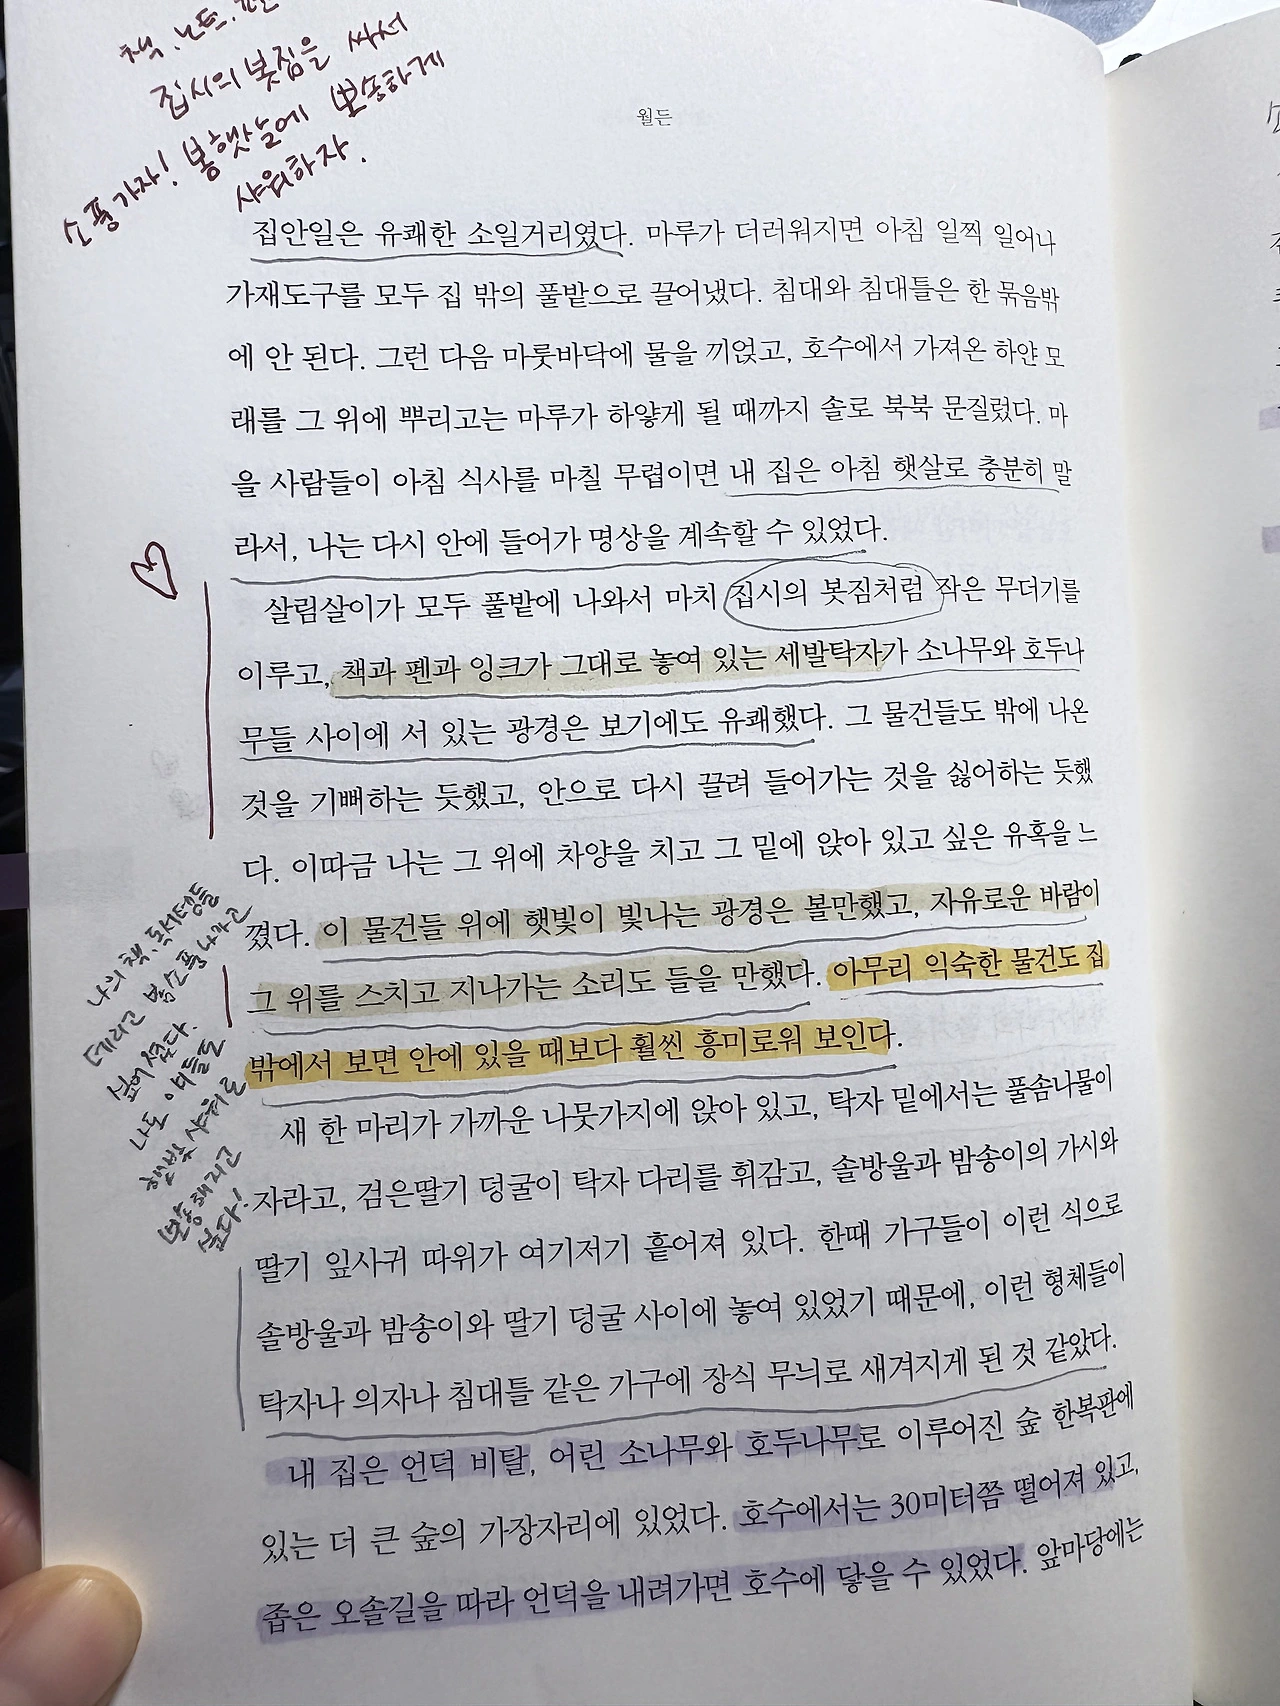 책.노트.
집시의 봇짐을 싸서
소풍가자! 봄햇살에 뽀송하게
샤워하자.
월든
집안일은 유쾌한 소일거리였다. 마루가 더러워지면 아침 일찍 일어나
가재도구를 모두 집 밖의 풀밭으로 끌어냈다. 침대와 침대틀은 한 묶음밖
에 안 된다. 그런 다음 마룻바닥에 물을 끼얹고, 호수에서 가져온 하얀 모
래를 그 위에 뿌리고는 마루가 하얗게 될 때까지 솔로 북북 문질렀다. 마
을 사람들이 아침 식사를 마칠 무렵이면 내 집은 아침 햇살로 충분히 말
라서, 나는 다시 안에 들어가 명상을 계속할 수 있었다.
살림살이가 모두 풀밭에 나와서 마치 집시의 봇짐처럼 작은 무더기를
이루고, 책과 펜과 잉크가 그대로 놓여 있는 세발탁자가 소나무와 호두나
무들 사이에 서 있는 광경은 보기에도 유쾌했다. 그 물건들도 밖에 나온
것을 기뻐하는 듯했고, 안으로 다시 끌려 들어가는 것을 싫어하는 듯했
다. 이따금 나는 그 위에 차양을 치고 그 밑에 앉아 있고 싶은 유혹을 느
꼈다. 이 물건들 위에 햇빛이 빛나는 광경은 볼만했고, 자유로운 바람이
그 위를 스치고 지나가는 소리도 들을 만했다. 아무리 익숙한 물건도 집
밖에서 보면 안에 있을 때보다 훨씬 흥미로워 보인다.
새 한 마리가 가까운 나뭇가지에 앉아 있고, 탁자 밑에서는 풀솜나물이
자라고, 검은딸기 덩굴이 탁자 다리를 휘감고, 솔방울과 밤송이의 가시와
딸기 잎사귀 따위가 여기저기 흩어져 있다. 한때 가구들이 이런 식으로
솔방울과 밤송이와 딸기 덩굴 사이에 놓여 있었기 때문에, 이런 형체들이
탁자나 의자나 침대틀 같은 가구에 장식 무늬로 새겨지게 된 것 같았다.
내 집은 언덕 비탈, 어린 소나무와 호두나무로 이루어진 숲 한복판에
있는 더 큰 숲의 가장자리에 있었다. 호수에서는 30미터쯤 떨어져 있고,
좁은 오솔길을 따라 언덕을 내려가면 호수에 닿을 수 있었다. 앞마당에는
나의 책, 독서텅들
데리고 봄소풍 나가고
싶어졌다.
나도 이들도
햇빛 샤워로
뽀송해지고
싶다!